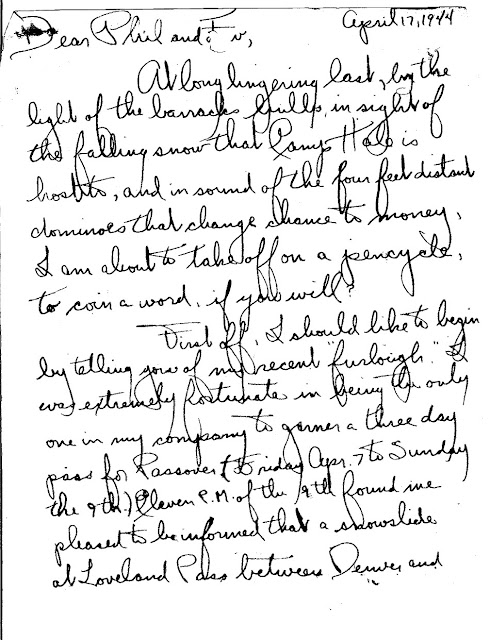 April 17, 1944
Dear Phil and Ev,
At long lingering last, by the
light of the barracks bulbs, in sight of
the falling snow that Camp Hale is
host to, and in sound of the four feet distant
dominoes that change chance to money,
I am about to take off on a pencycle,
to coin a word, if you will?
First off, I should like to begin
by telling you of my recent "furlough." I
was extremely fortunate in being the only
one in my company to garner a three day
pass for Passover (Friday Apr. 7 to Sunday
the 9th.) Eleven P.M. of the 9th found me
pleased to be informed that a snowslide
at Loveland Pass between Denver and